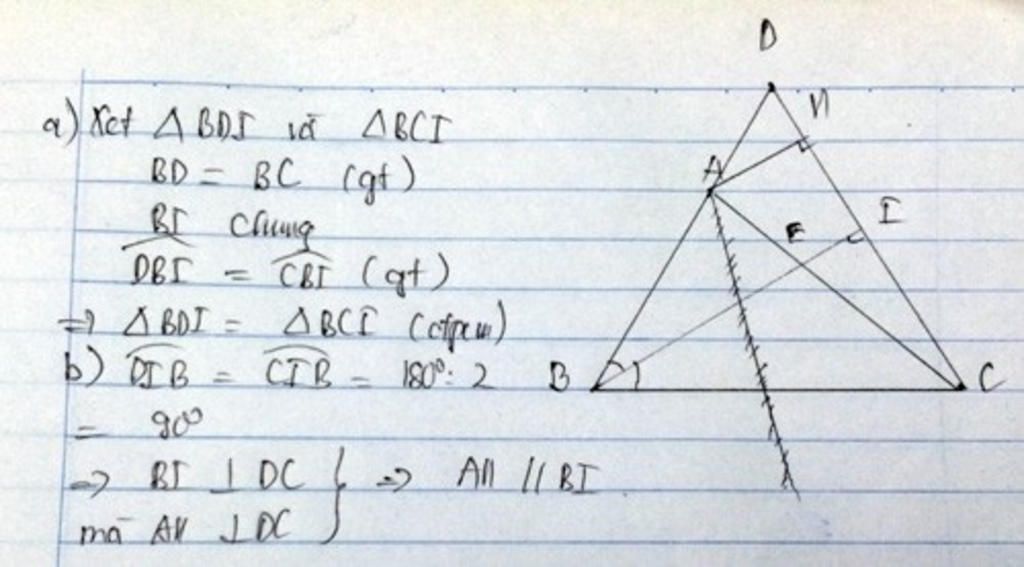 a) Xét △BDI và △BCI
BD = BC (gt)
BI chung
DBI = CBI (gt)
=> △BDI = △BCI (đpcm)
b) DIB = CIB = 180°: 2
= 90°
=> BI ⊥ DC } => AH // BI
mà AH ⊥ DC
D
H
A
I
E
B
C